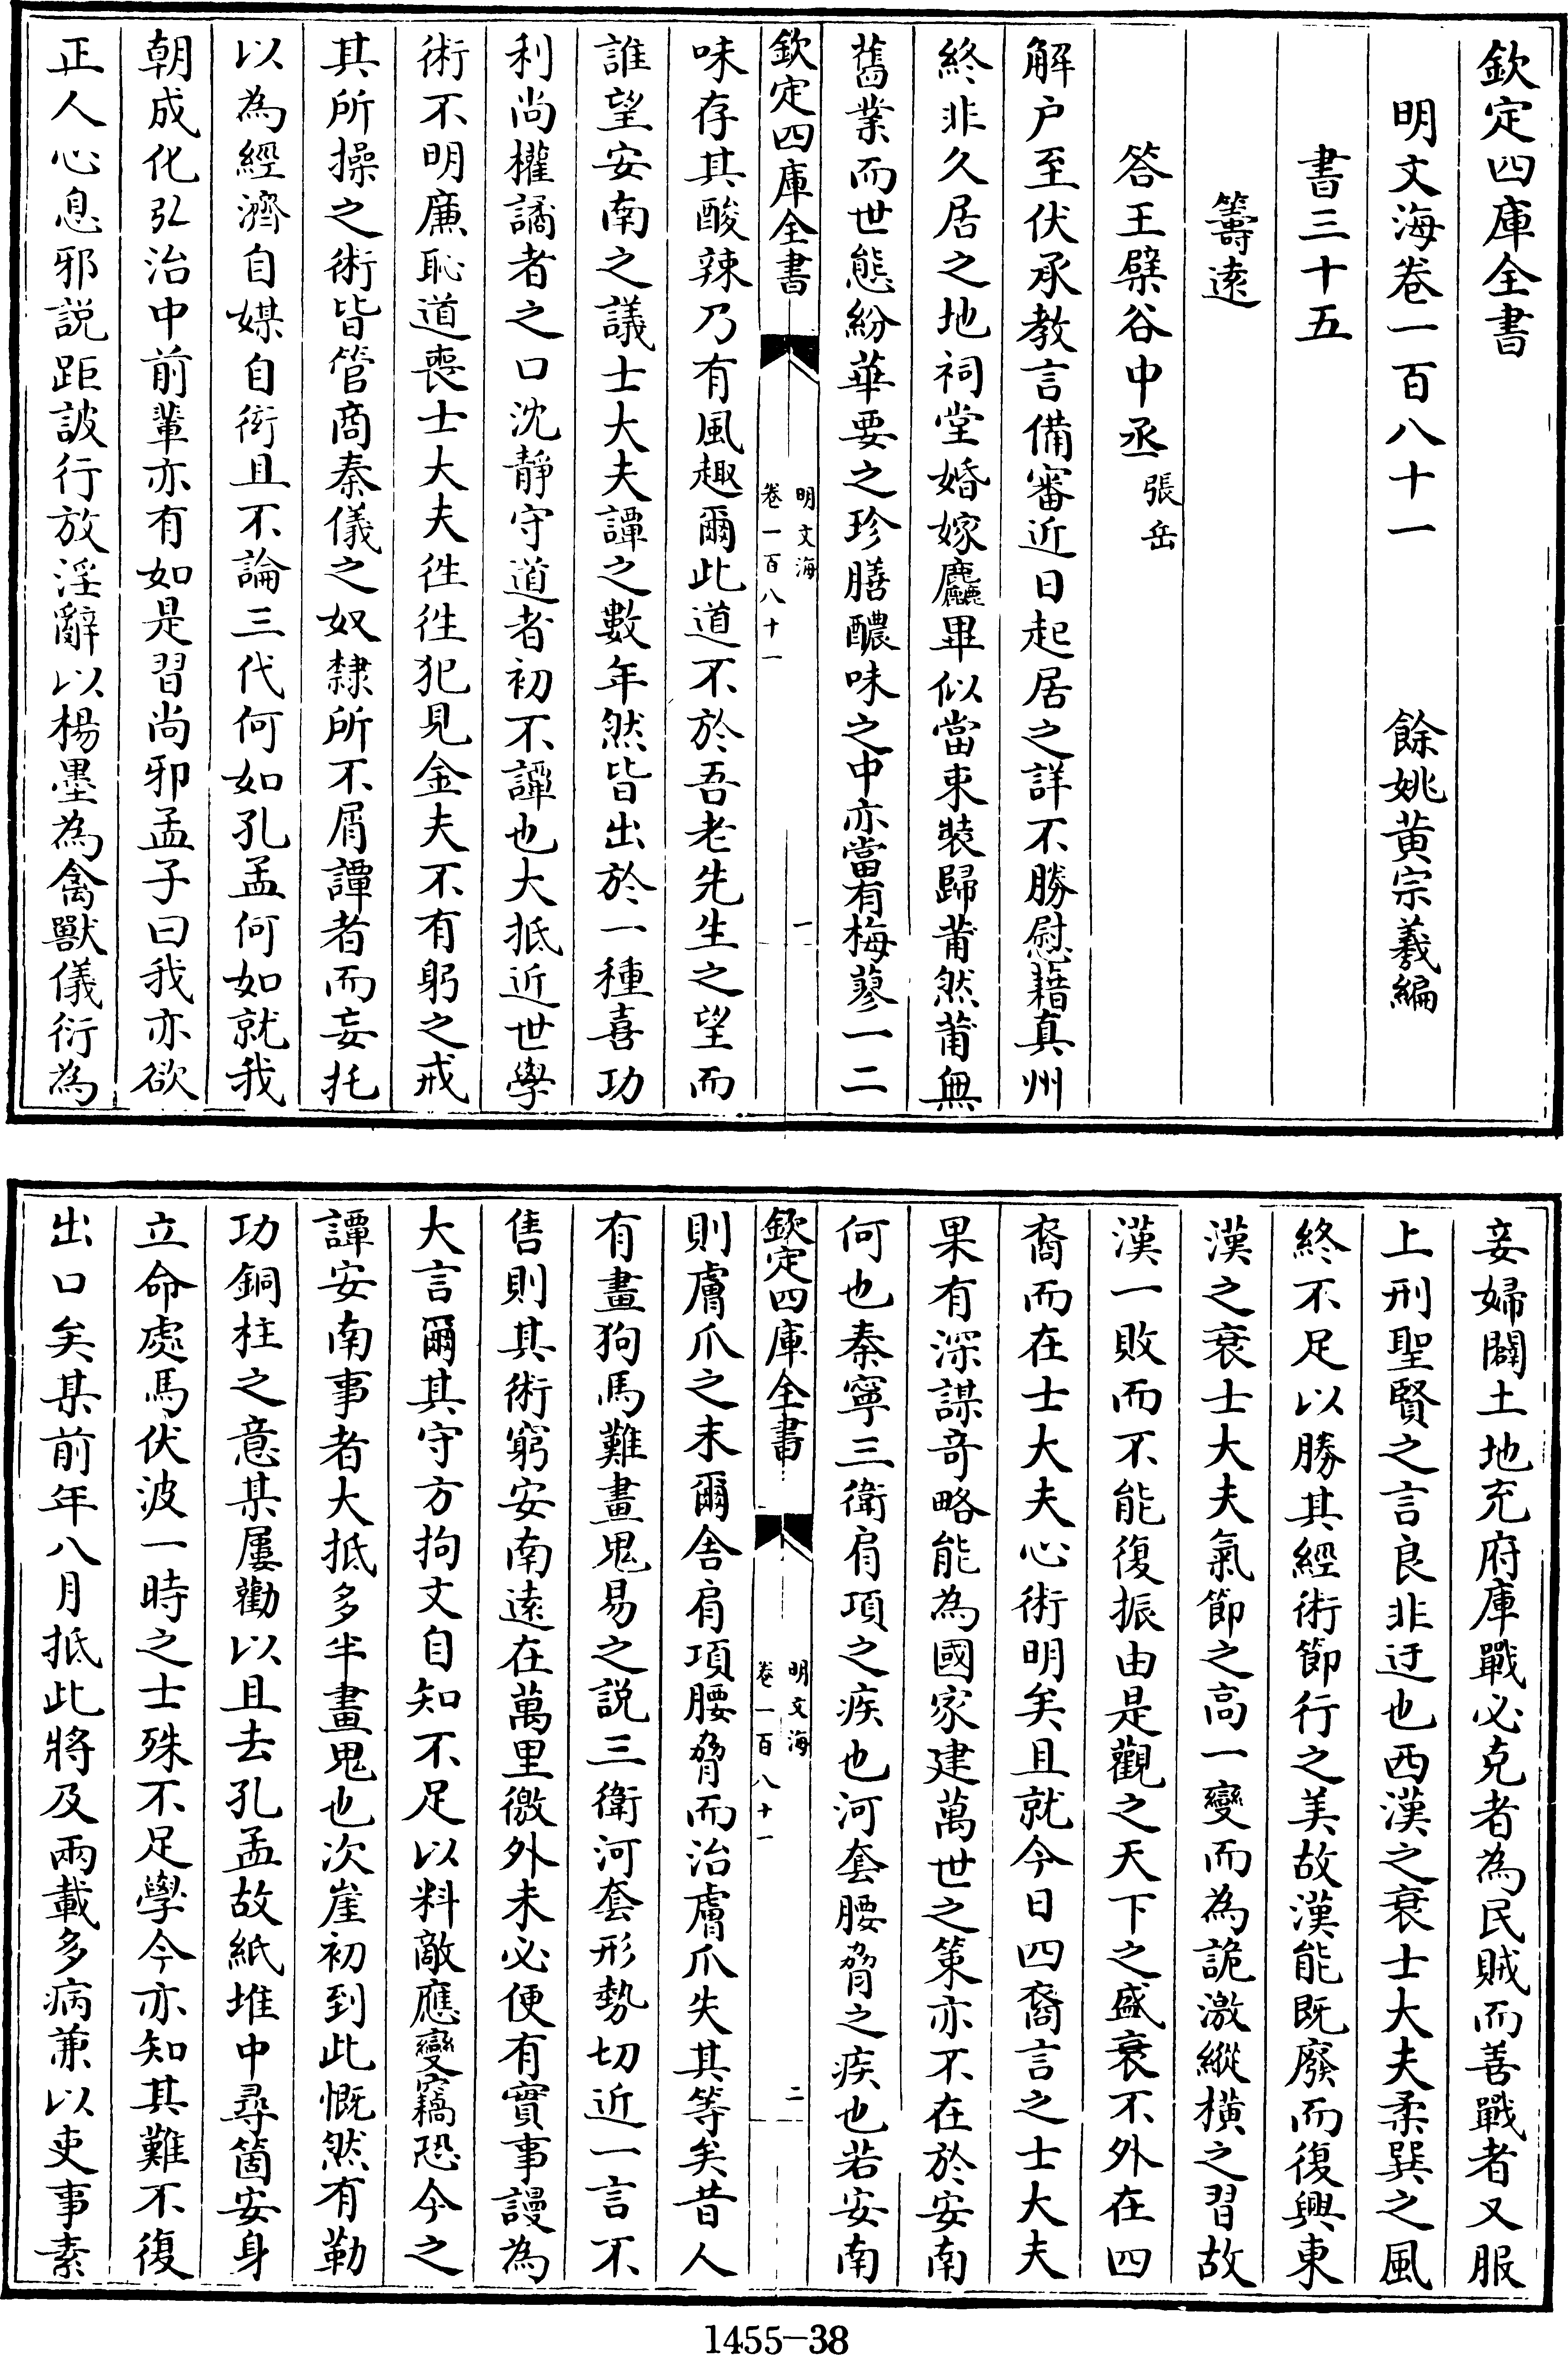 欽定四庫全書
明文海卷一百八十一　餘姚黄宗羲編
書三十五
籌遠
答王檗谷中丞 張岳
解户至伏承教言備審近日起居之詳不勝慰藉真州
終非久居之地祠堂婚嫁麤畢似當束裝歸莆然莆無
舊業而世態紛華要之珍膳醲味之中亦當有梅蓼一二
欽定四庫全書
明文海
卷一百八十一
一
味存其酸辣乃有風趣爾此道不於吾老先生之望而
誰望安南之議士大夫譚之數年然皆出於一種喜功
利尚權譎者之口沈靜守道者初不譚也大抵近世學
術不明廉恥道喪士大夫徃徃犯見金夫不有躬之戒
其所操之術皆管商秦儀之奴隸所不屑譚者而妄托
以為經濟自媒自衒且不論三代何如孔孟何如就我
朝成化弘治中前輩亦有如是習尚邪孟子曰我亦欲
正人心息邪説距詖行放淫辭以楊墨為禽獸儀衍為
妾婦闢土地充府庫戰必克者為民賊而善戰者又服
上刑聖賢之言良非迂也西漢之衰士大夫柔巽之風
終不足以勝其經術節行之美故漢能既廢而復興東
漢之衰士大夫氣節之高一變而為詭激縱橫之習故
漢一敗而不能復振由是觀之天下之盛衰不外在四
裔而在士大夫心術明矣且就今日四裔言之士大夫
果有深謀奇略能為國家建萬世之策亦不在於安南
何也秦寧三衛肩項之疾也河套腰脅之疾也若安南
欽定四庫全書
明文海
卷一百八十一
二
則膚爪之末爾舍肩項腰脅而治膚爪失其等矣昔人
有畫狗馬難畫鬼易之説三衛河套形勢切近一言不
售則其術窮安南遠在萬里徼外未必便有實事謾為
大言爾其守方拘文自知不足以料敵應變竊恐今之
譚安南事者大抵多半畫鬼也次崖初到此慨然有勒
功銅柱之意某屢勸以且去孔孟故紙堆中尋箇安身
立命處馬伏波一時之士殊不足學今亦知其難不復
出口矣某前年八月抵此將及兩載多病兼以吏事素
1455-38